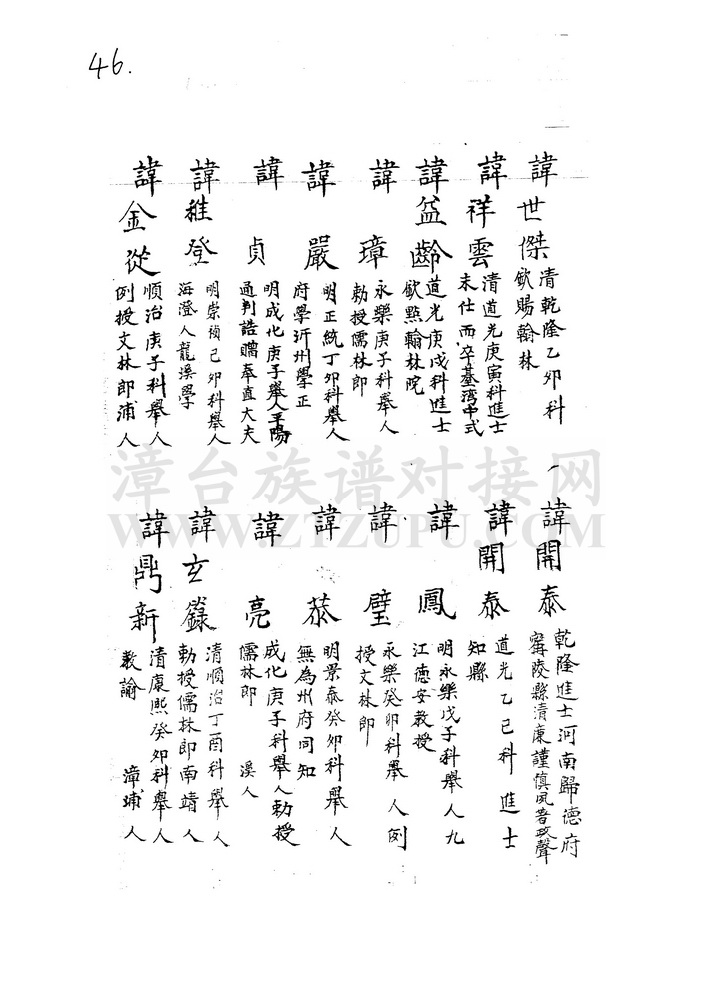 46.
諱世傑
清乾隆乙卯科
欽賜翰林
諱祥雲
清道光庚寅科進士
未仕而卒臺灣中式
諱益齡
道光庚戌科進士
欽點翰林院
諱璋
永樂庚子科舉人
勅授儒林郎
諱嚴
明正統丁卯科舉人
府學沂州學正
諱貞
明成化庚子舉人平陽
通判誥贈奉直大夫
諱維登
明崇禎己卯科舉人
海澄人龍溪學
諱金從
順治庚子科舉人
例授文林郎浦人
諱開泰
乾隆進士河南歸德府
寗陵縣清廉謹慎夙著政聲
諱開泰
道光乙巳科進士
知縣
諱鳳
明永樂戊子科舉人九
江德安教授
諱璧
永樂癸卯科舉人例
授文林郎
諱恭
明景泰癸卯科舉人
無為州府同知
諱亮
成化庚子科舉人勅授
儒林郎 溪人
諱玄籙
清順治丁酉科舉人
勅授儒林郎南靖人
諱鼎新
清康熙癸卯科舉人
教諭 漳埔人
漳台族谱对接网
WWW.ZTZUPU.COM